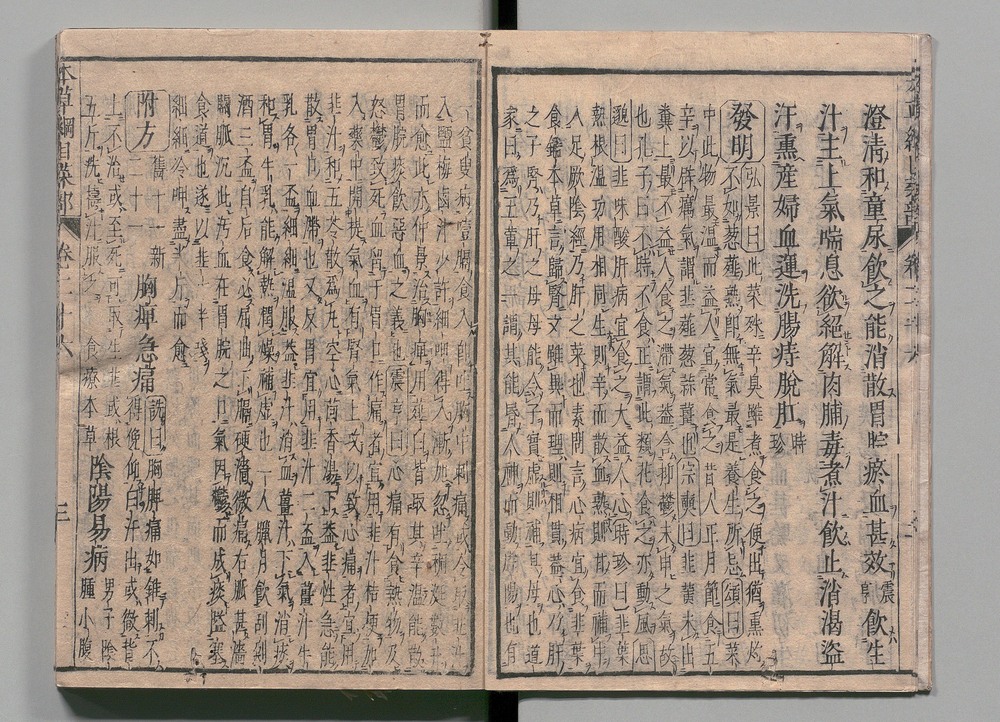 澄淸和童尿飲之能消散胃脘瘀血甚效震亨飲生
汁主上氣喘息欲絕解肉脯毒煮汁飲止消渴盜
汗熏産婦血運洗腸痔脫肛時珍
發明弘景曰此菜殊辛臭雖煮食之便出猶熏灼
不如葱薤熟卽無氣最是養生所忌頌曰菜
中此物最温而益人宜常食之昔人正月節食五
辛以辟癘氣謂韭薤葱蒜薑也宗奭曰韭黃未出
糞土最不益人食之滯氣蓋含抑鬱未申之氣故
也孔子曰不時不食正謂此類花食之亦動風思
邈曰韭味酸肝病宜食之大益人心時珍曰韭葉
熱根温功用相同生則辛而散血熟則甘而補中
入足厥陰經乃肝之菜也素問言心病宜食韭葉
食鑑本草言歸腎文雖異而理則相貫蓋心乃肝
之子腎乃肝之母母能令子實虛則補其母也道
家目爲五葷之一謂其能昏人神而動虛陽也有
一貧叟病噎膈食入卽吐胸中刺痛或令取韭汁
入鹽梅鹵汁少許細呷得入漸加忽吐稠涎數升
而愈此亦仲景治胸痹用薤白皆取其辛温能散
胃脘痰飲惡血之義也震亨曰心痛有食熱物及
怒鬱致死血留于胃口作痛者宜用韭汁桔梗加
入藥中開提氣血有腎氣上攻以致心痛者宜用
韭汁和五苓散爲丸空心茴香湯下蓋韭性急能
散胃口血滯也又反胃宜用韭汁二盃入薑汁牛
乳各一盃細細温服蓋韭汁消血薑汁下氣消痰
和胃牛乳能解熱潤燥補虛也一人臘月飲刮剁
酒三盃自後食必屈曲下膈硬濇微痛右脈甚濇
關脈沉此汚血在胃脘之口氣因鬱而成痰隘塞
食道也遂以韭汁半盞
細細冷呷盡半斤而愈
附方舊十一新二十一胸痺急痛詵曰胸痺痛如錐刺不得俛仰白汗出或徹背
上不治或至死可取生韭或根五斤洗擣汁服之食療本草陰陽易病男子陰腫小腹
本草綱目菜部 卷二十六 三